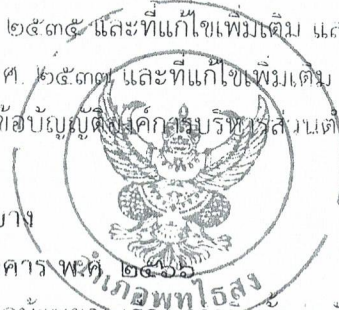 ๒๕๓๕ และที่แก้ไขเพิ่มเติม แล
ศ. ๒๕๓๗ และที่แก้ไขเพิ่มเติม
ข้อบัญญัติองค์การบริหารส่วนตำ
บาง
คาร พ.ศ. ๒๕๖๖
อำเภอพุทไธสง